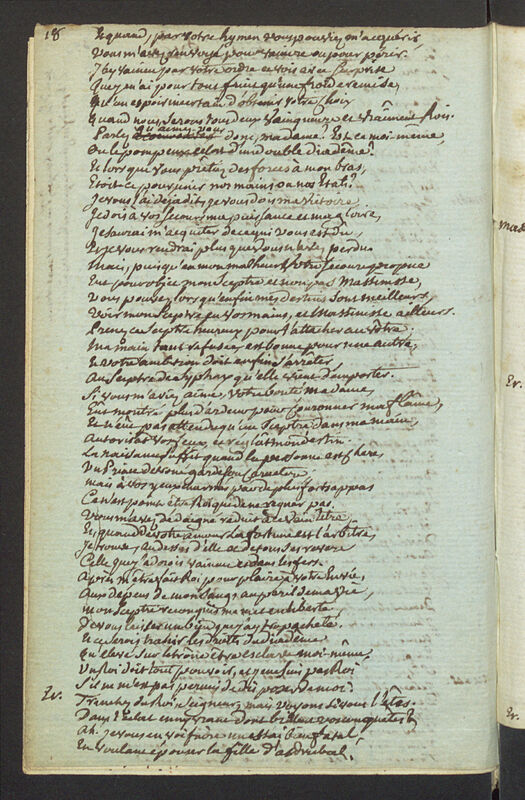 18
Et quand, par votre hymen vous pouviez m'acquerir
Vous m'avez renvoyé pour vaincre ou pour périr.
J'ay vaincu par votre ordre et vois avec surprise
Que je n'ai pour tout fruit qu'une froide remise,
Qu'un espoir incertain d'obtenir votre choix
Quand nous serons tous deux vainqueurs et vraiment Rois.
Parlez donc, madame! Est-ce moi-même,
qu'aimez vous
Ou le pompeux éclat d'un double diadême?
Et lorsque vous prêtiez des forces à mon bras,
Etoit-ce pour unir nos mains ou nos Etats?
Je vous l'ai déja dit, je vous dois ma victoire,
Je dois à vos secours ma puissance et ma gloire,
Je saurai m'acquiter de ce qui vous est du,
Et je vous rendrai plus que vous n'avez perdu
Mais, puisqu'en mon malheur votre secours propice
Eut pour objet mon sceptre et non pas Massinisse,
Vous pouvez, lorsqu'enfin mes destins sont meilleurs,
Voir mon sceptre en vos mains, et Massinisse ailleurs.
Prenez ce sceptre heureux pour l'attacher au votre.
Ma main tant refusée est bonne pour une autre,
Et votre ambition doit enfin s'arrêter
Au sceptre de Syphax qu'elle vient d'emporter.
Si vous m'aviez aimé, votre bonté madame,
Eut montré plus d'ardeur pour couronner ma flâme,
Et n'eut pas attendu qu'un sceptre dans ma main,
Autorisat vos feux, et reglat mon destin.
La naissance suffit quand la personne est chere,
Un Prince detroné garde son caractere
mais à vos yeux charmés par de plus forts appas
Ce n'est point être Roi que de ne regner pas.
Vous m'avez dedaigné reduit à ce vain titre
Et, quand de votre amour la fortune est l'arbitre,
Je trouve, au dessus d'elle et de tous ses revers
Celle que j'adorois vaincue et dans les fers.
Après m'être fait Roi pour plaire à votre Envie,
Aux depens de mon sang, au peril de ma vie,
mon sceptre reconquis me met en liberté,
De vous laisser un bien que j'ay trop acheté.
Et ce serois trahir les droits du diadême
Qu'élevé sur le trône être esclave moi-même,
Un Roi doit tout pouvoir, et je ne suis pas Roi
S'il ne m'est pas permis de disposer de moi?
Er. Tranchez du Roi, seigneur, mais voyons si vous l'êtes
Dans l'éclat enyvrant dont brillent vos conquêtes
Ah. je vous en vois faire un essai bien fatal,
En voulant épouser la fille d'Asdrubal!
mad
Er.
Er.